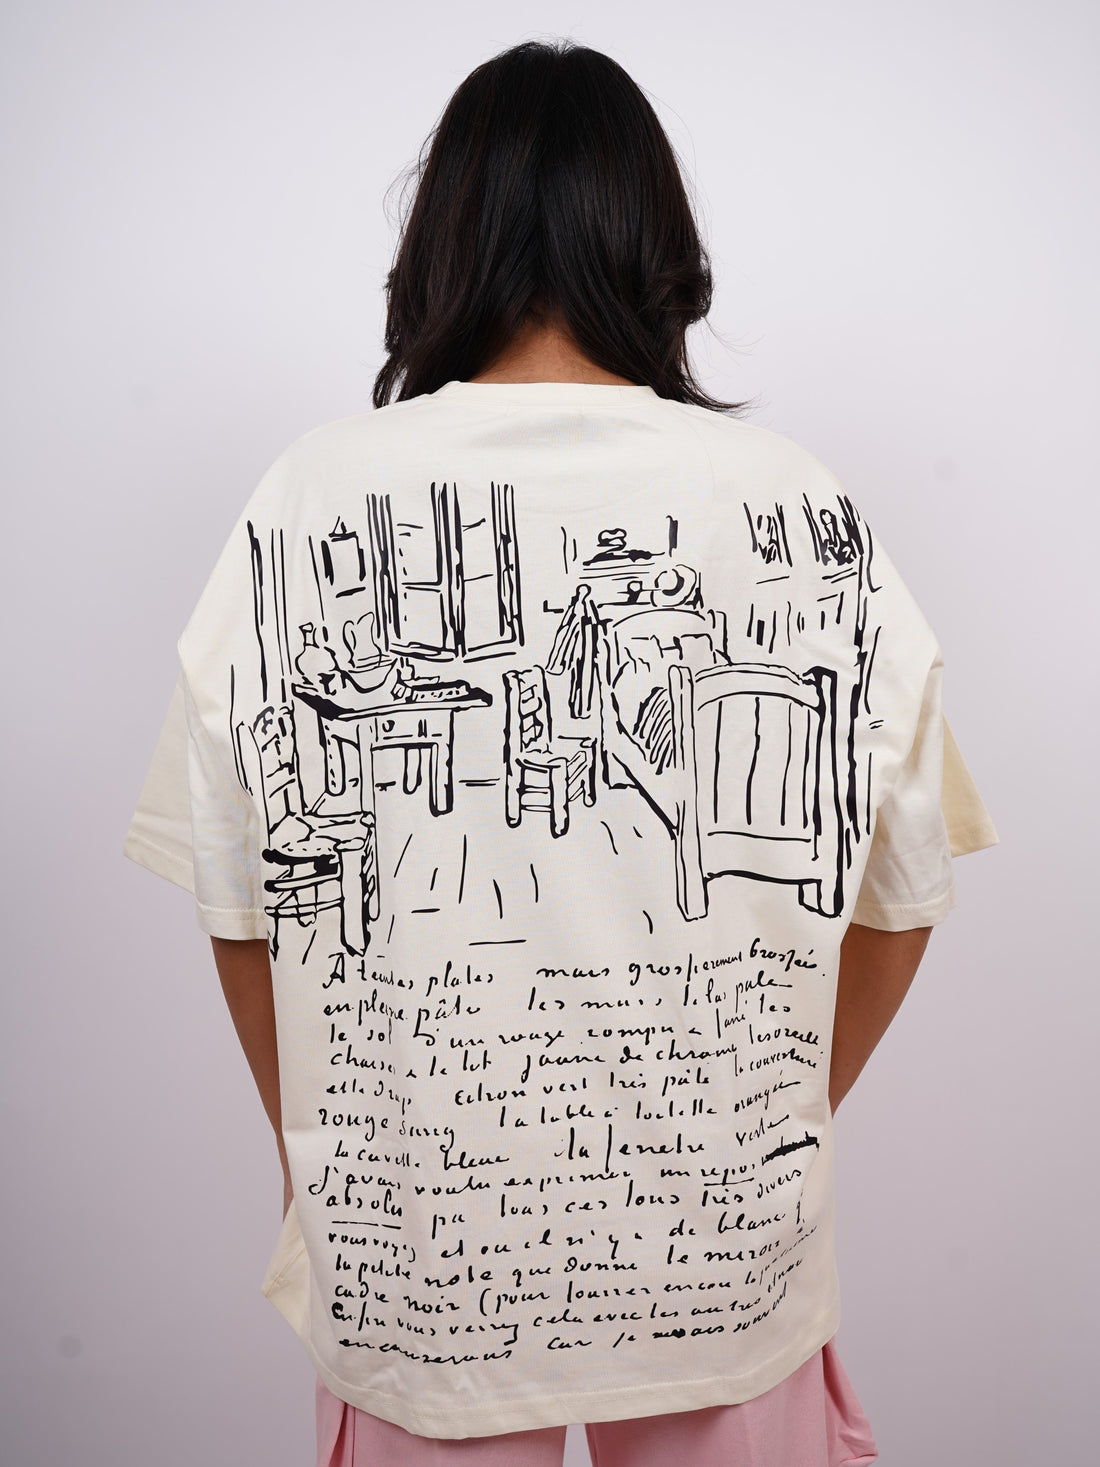 A teintes plates mais grossierement brossées
en pleine pâte les murs lilas pale
le sol d'un rouge rompu e fané les
chaises e le lit jaune de chrome les oreillers
et le drap citron vert très pâle la couverture
rouge sang la table à toilette orangée
la cuvette bleue la fenetre verte
J'avais voulu exprimer un repos
absolu par tous ces tons très divers
vous voyez et ou il n'y a de blanc q
la petite note que donne le miroir à
cadre noir (pour fourrer encore la
Enfin vous verrez cela avec les autres et nous
en causerons car je ne sais souvent